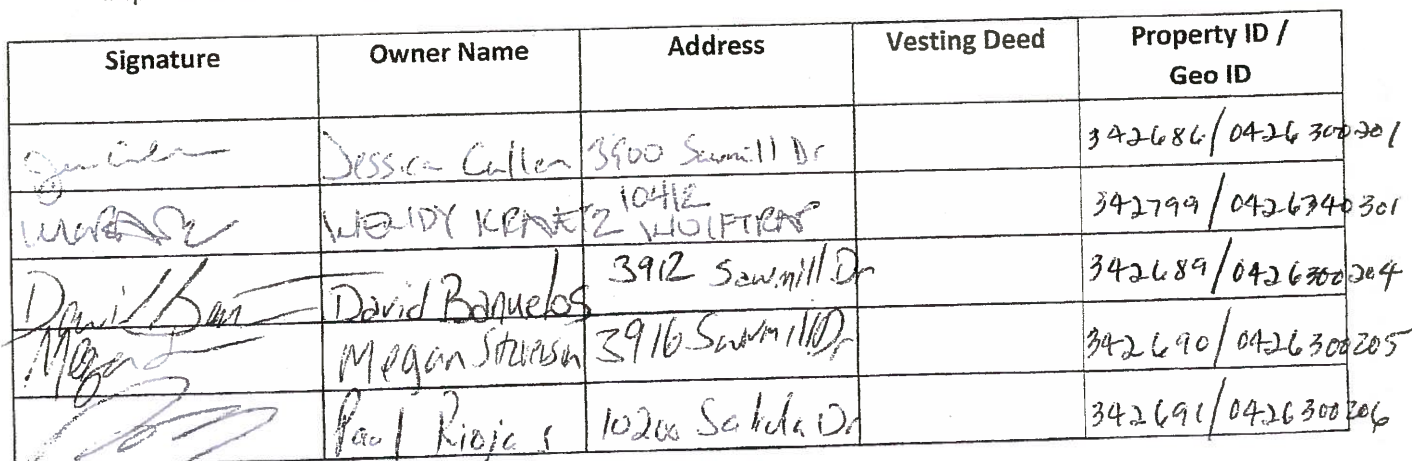 Signature Owner Name Address Vesting Deed Property ID /
Geo ID
Jessica Cullen 3900 Sawmill Dr 342686/0426300201
10412
WENDY KRAVETZ WOLFTRAP 342799/0426340301
David Banuelos 3912 Sawmill Dr 342689/0426300204
Megan 3916 Sawmill Dr 342690/0426300205
Paul Riojas Salida Dr 342691/0426300206